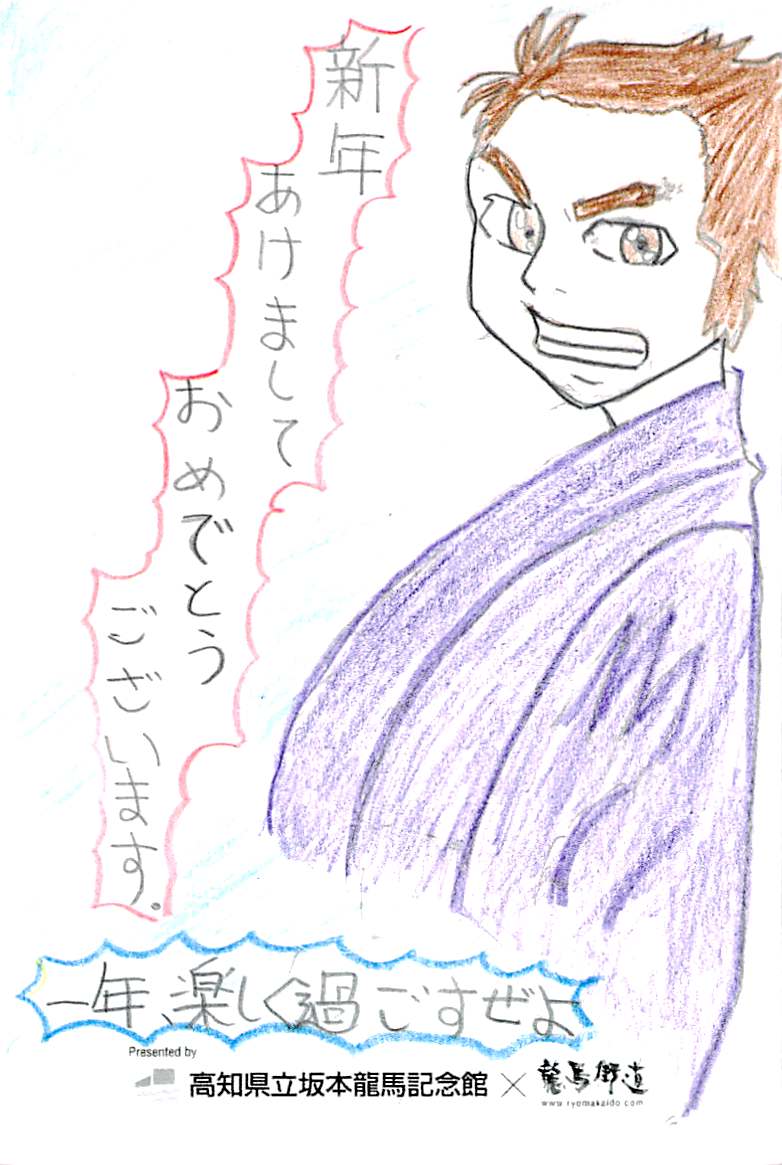 新年
あけまして
おめでとう
ございます。
一年、楽しく過ごすぜよ
Presented by
高知県立坂本龍馬記念館×龍馬街道
www.ryomakaido.com